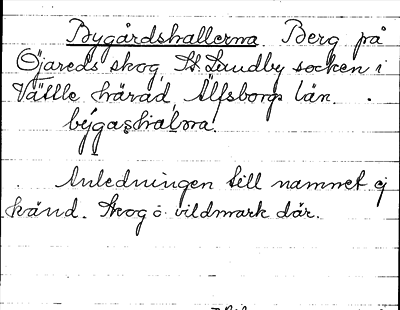 Bygårdshallerna Berg på
Öjareds skog, St. Lundby socken i
Vättle härad, Älfsborgs län.
býgashalʒna.
Anledningen till namnet ej
känd. Skog o vildmark där.